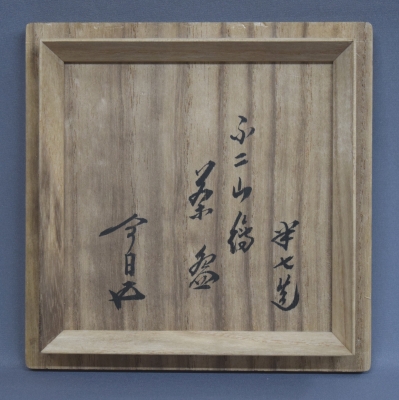 半七造
不二山
茶盌
今日庵